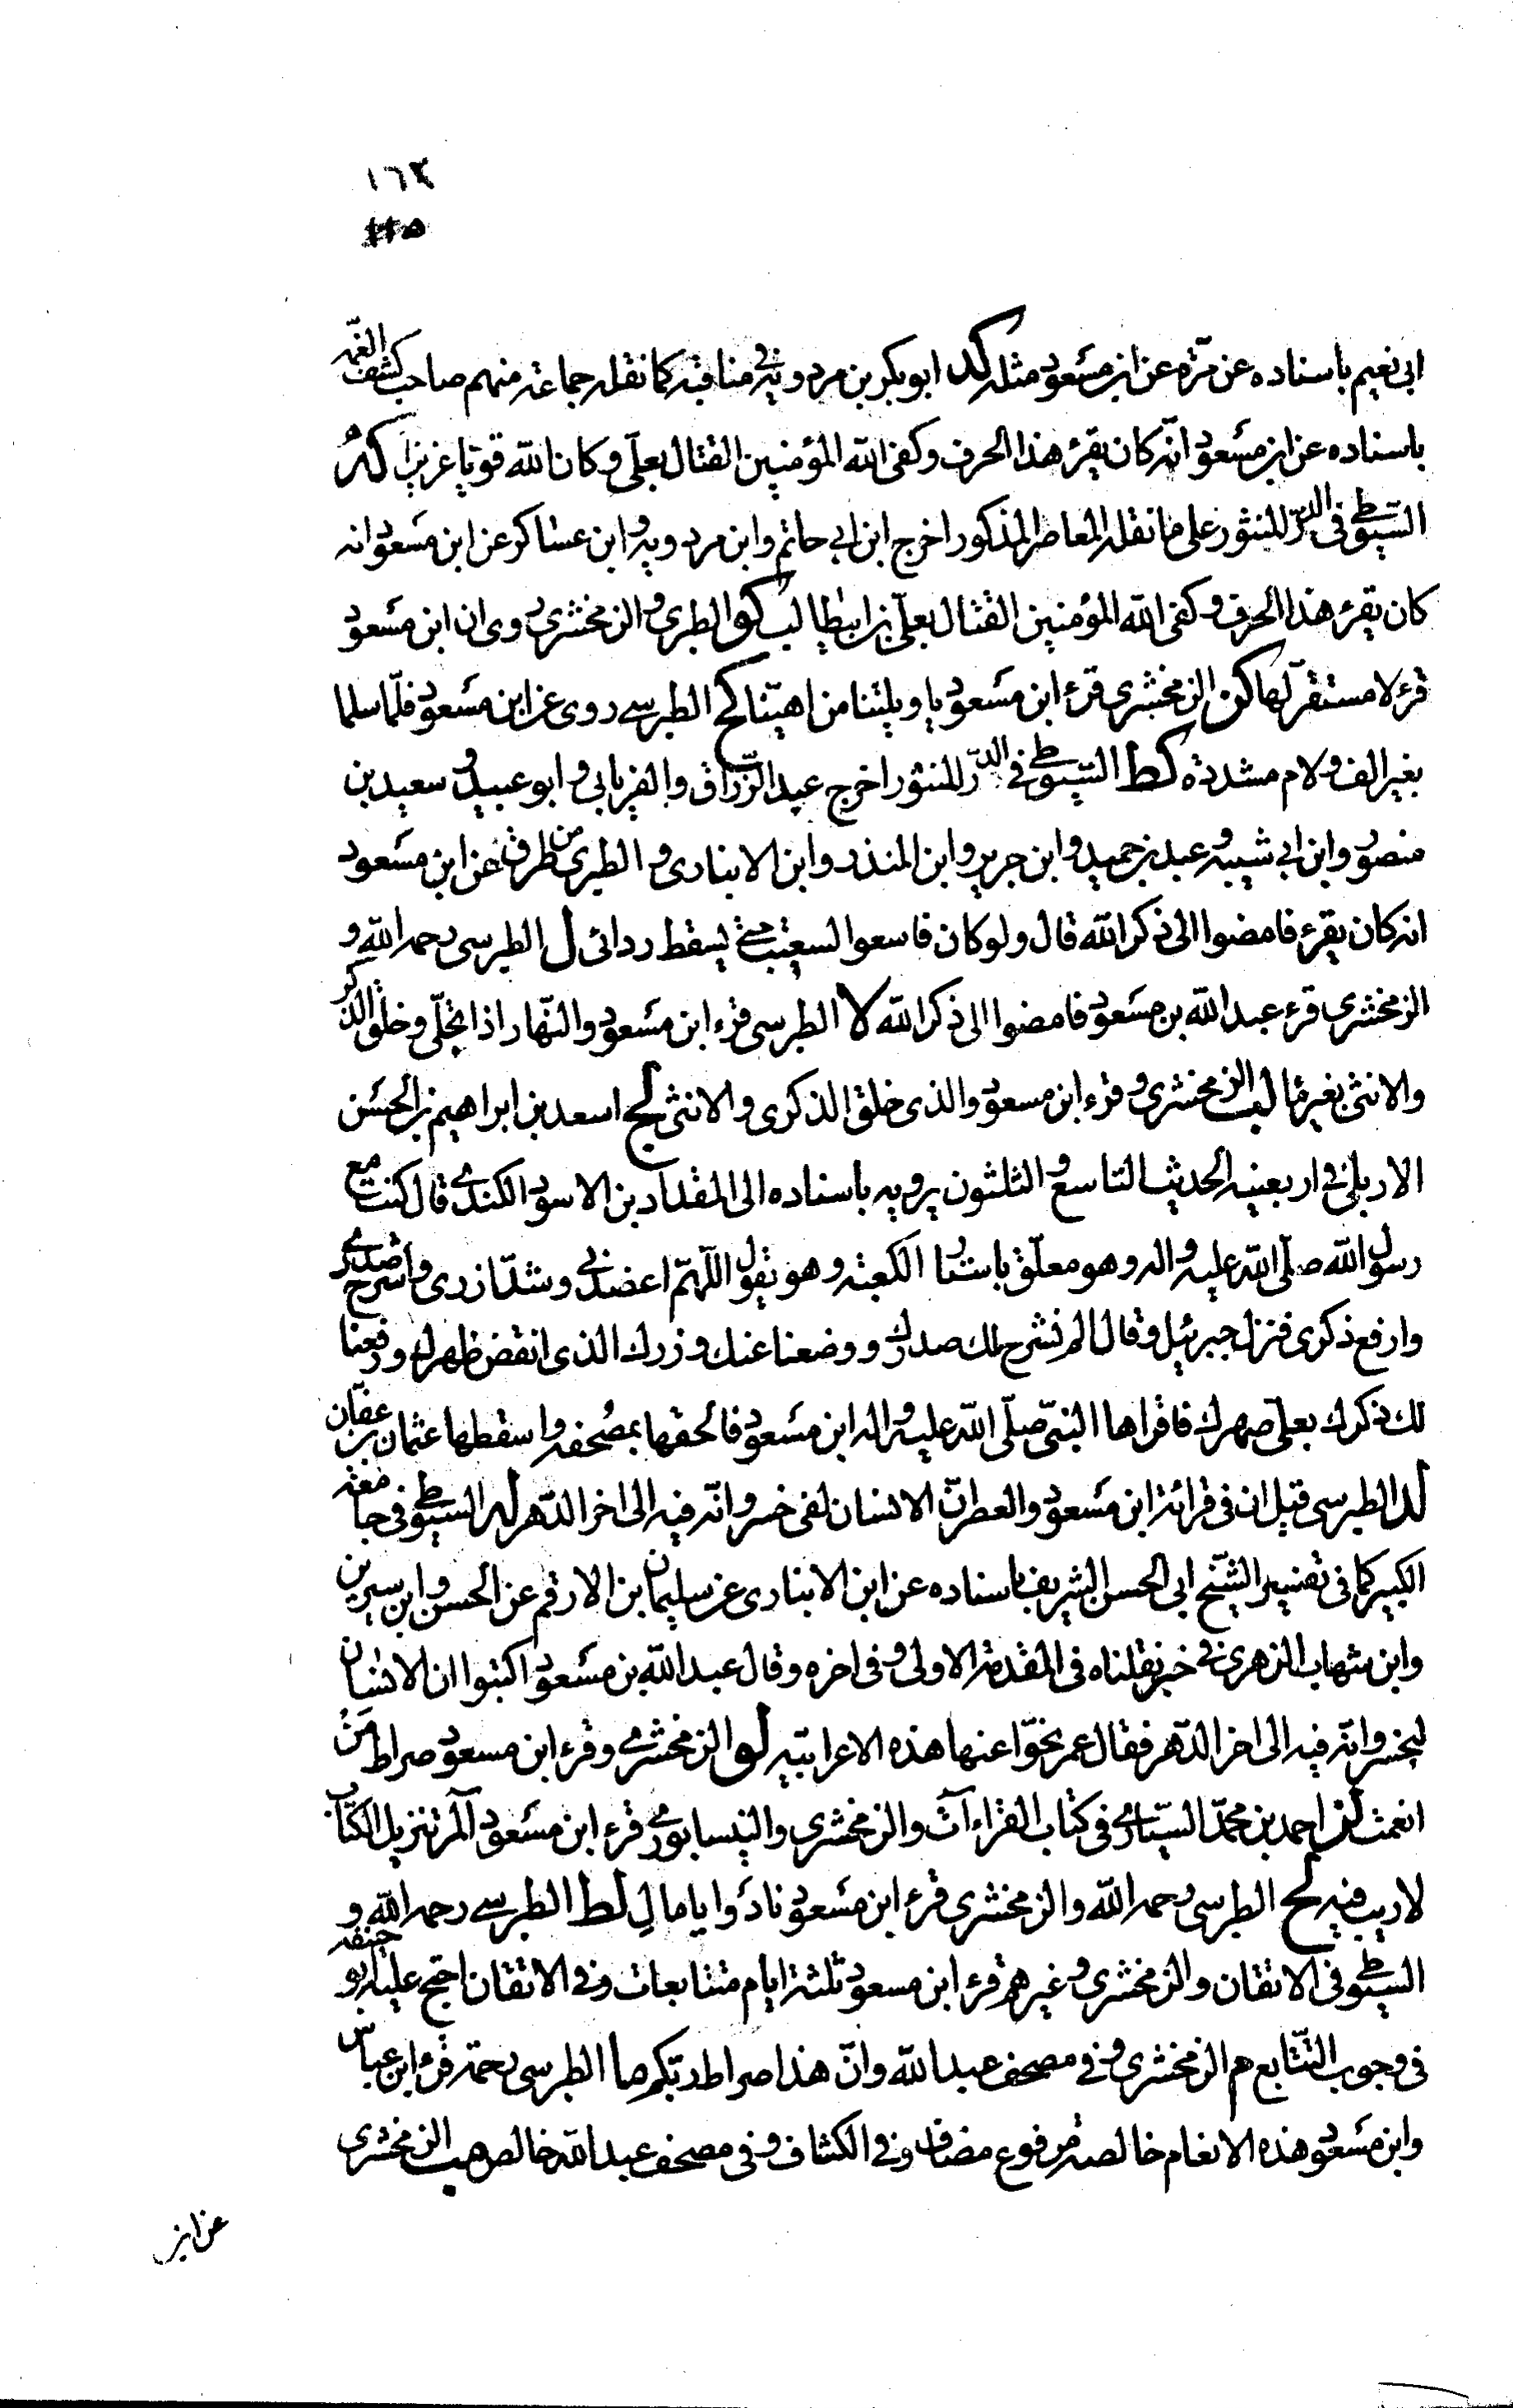 ١٦٢
١١٥
ابى نعيم باسناده عن مرّة عن ابن مسعود مثله كد ابو بكر بن مردويه فى مناقبه كما نقله جماعة منهم صاحب كشف الغمّه
باسناده عن ابن مسعود انّه كان يقرء هذا الحرف وكفى الله المؤمنين القتال بعلىّ وكان الله قويّا عزيزا كه
السّيوطى فى الدرّ المنثور على ما نقله المعاصر المذكور اخرج ابن ابى حاتم وابن مردويه وابن عساكر عن ابن مسعود انه
كان يقرء هذا الحرف وكفى الله المؤمنين القتال بعلىّ بن ابيطالب كو الطبرى والزمخشرى روى ان ابن مسعود
قرء لا مستقرّ لها كز الزمخشرى قرء ابن مسعود يا ويلتنا من اهبّنا كح الطبرسى روى عن ابن مسعود فلمّا سلما
بغير الف ولام مشددة كط السّيوطى فى الدّر المنثور اخرج عبد الرّزاق والفريابى وابو عبيد وسعيد بن
منصور وابن ابى شيبه وعبد بن حميد وابن جرير وابن المنذر وابن الانبارى والطبرى من طرق عن ابن مسعود
انه كان يقرء فامضوا الى ذكر الله قال ولو كان فاسعوا لسعيت حتى يسقط ردائى ل الطبرسى رحمه الله و
الزمخشرى قرء عبد الله بن مسعود فامضوا الى ذكر الله لا الطبرسى قرء ابن مسعود والنّهار اذا تجلّى وخلق الذكر
والانثى بغير ما لب الزمخشرى وقرء ابن مسعود والذى خلق الذكرى والانثى لج اسعد بن ابراهيم بن الحسن
الاربلى فى اربعينه الحديث التاسع والثلثون يرويه باسناده الى المقداد بن الاسود الكندى قال كنت مع
رسول الله صلّى الله عليه واله وهو معلّق باستار الكعبة وهو يقول اللّهمّ اعضدنى وشدّ ازرى واشرح صدرى
وارفع ذكرى فنزل جبرئيل وقال الم نشرح لك صدرك ووضعنا عنك وزرك الذى انقض ظهرك ورفعنا
لك ذكرك بعلىّ صهرك فاقراها النبىّ صلّى الله عليه واله ابن مسعود فالحقها بمصحفه واسقطها عثمان بن عفّان
لد الطبرسى قيل ان فى قرائة ابن مسعود والعصر انّ الانسان لفى خسر وانّه فيه الى اخر الدّهر له السيوطى فى جامعه
الكبير كما فى تفسير الشّيخ ابى الحسن الشريف باسناده عن ابن الانبارى عن سليمان بن الارقم عن الحسن وابن سيرين
وابن شهاب الزهرى فى خبر نقلناه فى المقدمة الاولى وفى اخره وقال عبد الله بن مسعود اكتبوا ان الانسان
ليخسر وانّه فيه الى اخر الدّهر فقال عمر نحّوا عنها هذه الاعرابيّه لو الزمخشرى وقرء ابن مسعود صراط من
انعمت لز احمد بن محمّد السّيّارى فى كتاب القراءآت والزمخشرى والنيسابورى قرء ابن مسعود آلم تنزيل الكتاب
لا ريب فيه لح الطبرسى رحمه الله والزمخشرى قرء ابن مسعود نادوا يا مال لط الطبرسى رحمه الله و
السيوطى فى الاتقان والزمخشرى وغيرهم قرء ابن مسعود ثلثة ايام متتابعات وفى الاتقان احتج عليه ابو حنيفه
فى وجوب التّتابع م الزمخشرى وفى مصحف عبد الله وانّ هذا صراط ربّكم ما الطبرسى رحمه قرء ابن عباس
وابن مسعود هذه الانعام خالصه مرفوع مضاف وفى الكشاف وفى مصحف عبد الله خالص هب الزمخشرى
عن ابن